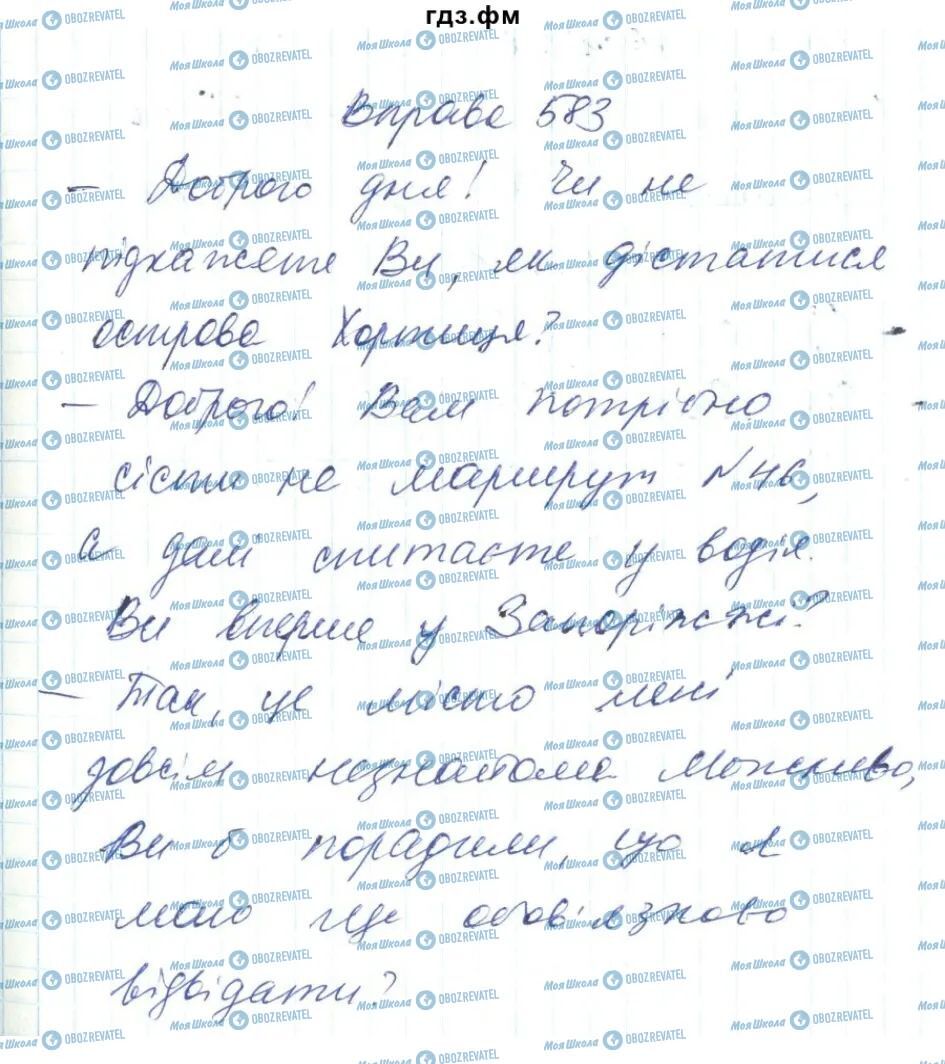 гдз.фм
Вправа 583
- Доброго дня! Чи не
підкажете Ви, як дістатися
острова Хортиця?
- Доброго! Вам потрібно
сісти на маршрут №46,
а далі спитаєте у водія.
Ви вперше у Запоріжжі?
- Так, це місто мені
зовсім незнайоме. Можливо,
Ви б порадили, що я
маю ще обов'язково
відвідати?